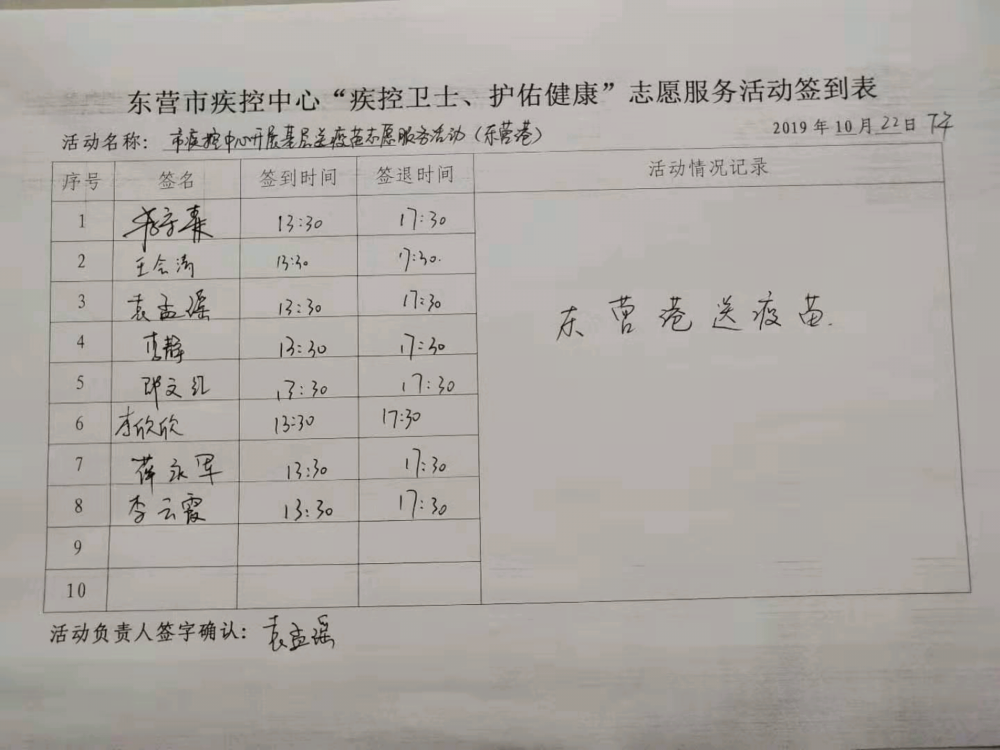 东营市疾控中心“疾控卫士、护佑健康”志愿服务活动签到表
活动名称：市疾控中心开展基层送疫苗志愿服务活动（东营港）
2019年10月22日 下午
序号 签名 签到时间 签退时间 活动情况记录
1 13:30 17:30
2 王会涛 13:30 17:30.
3 袁孟瑶 13:30 17:30
4 李静 13:30 17:30
5 邓文红 13:30 17:30
6 李欣欣 13:30 17:30
7 薛永军 13:30 17:30
8 李云霞 13:30 17:30
9
10
东营港送疫苗.
活动负责人签字确认：袁孟瑶